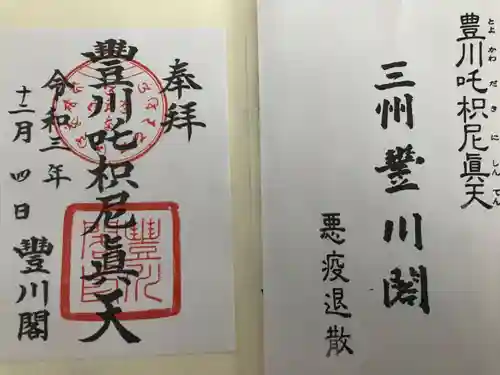 豊川吒枳尼眞天
とよかわだきにしんてん
三州豐川閣
悪疫退散
奉拜
豐川吒枳尼眞天
令和三年
十二月四日
豐川閣